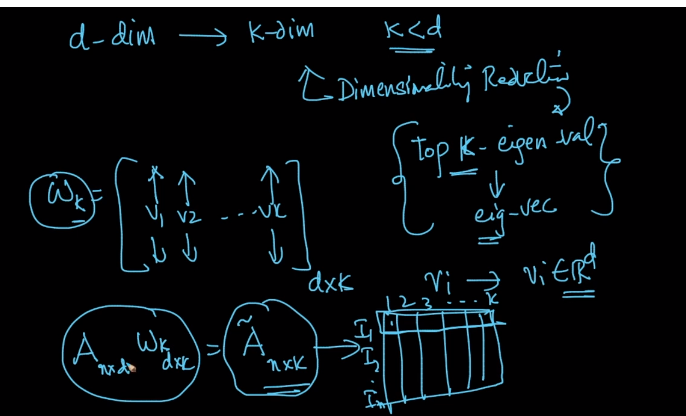 d-dim → k-dim   k<d
Dimensionality Reduction
top k - eigen val
↓
eig-vec
W_k = [ v1 v2 ... vk ] dxk
vi → vi ∈ ℝ^d
1 2 3 ... k
A_nxd W_k dxk = Ã_nxk →
I1
I2
In